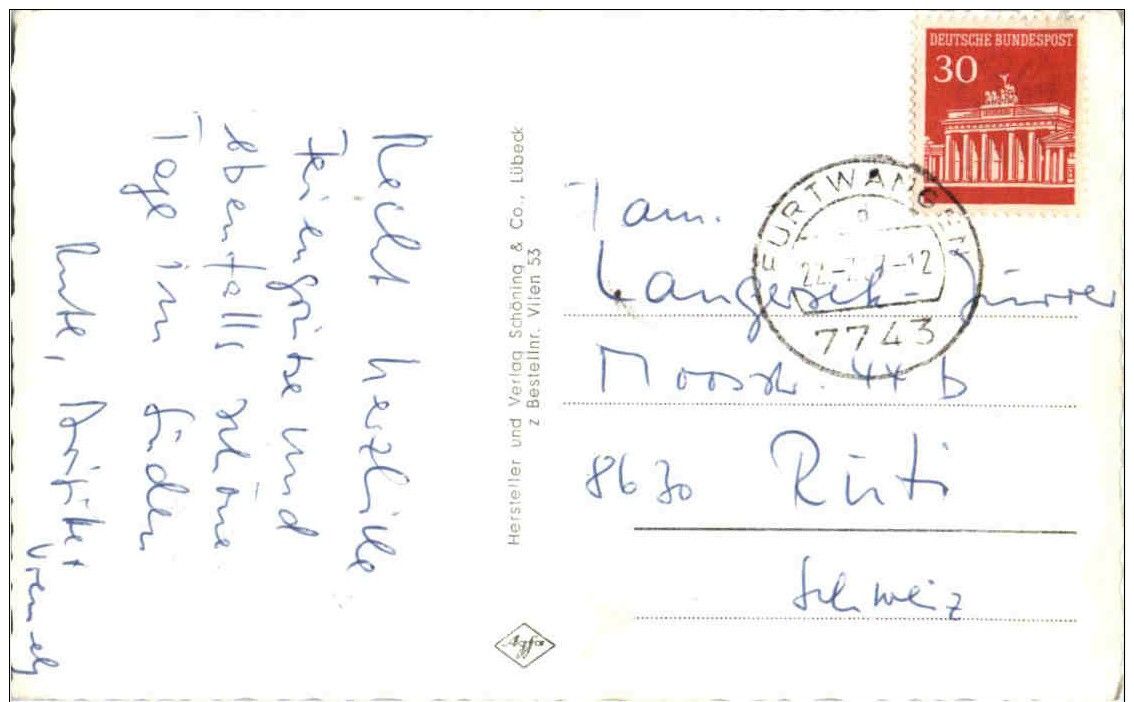 Recht herzliche
Feriengrüsse und
ebenfalls schöne
Tage im Süden
Hersteller und Verlag Schöning & Co., Lübeck
z Bestellnr. Villen 53
Agfa
DEUTSCHE BUNDESPOST
30
FURTWANGEN
7743
Fam.
Moosstr. 44 b
8630 Rüti
Schweiz